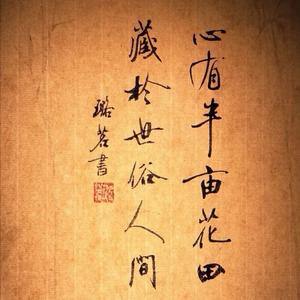 心有半亩花田
藏於世俗人間
璐茗書